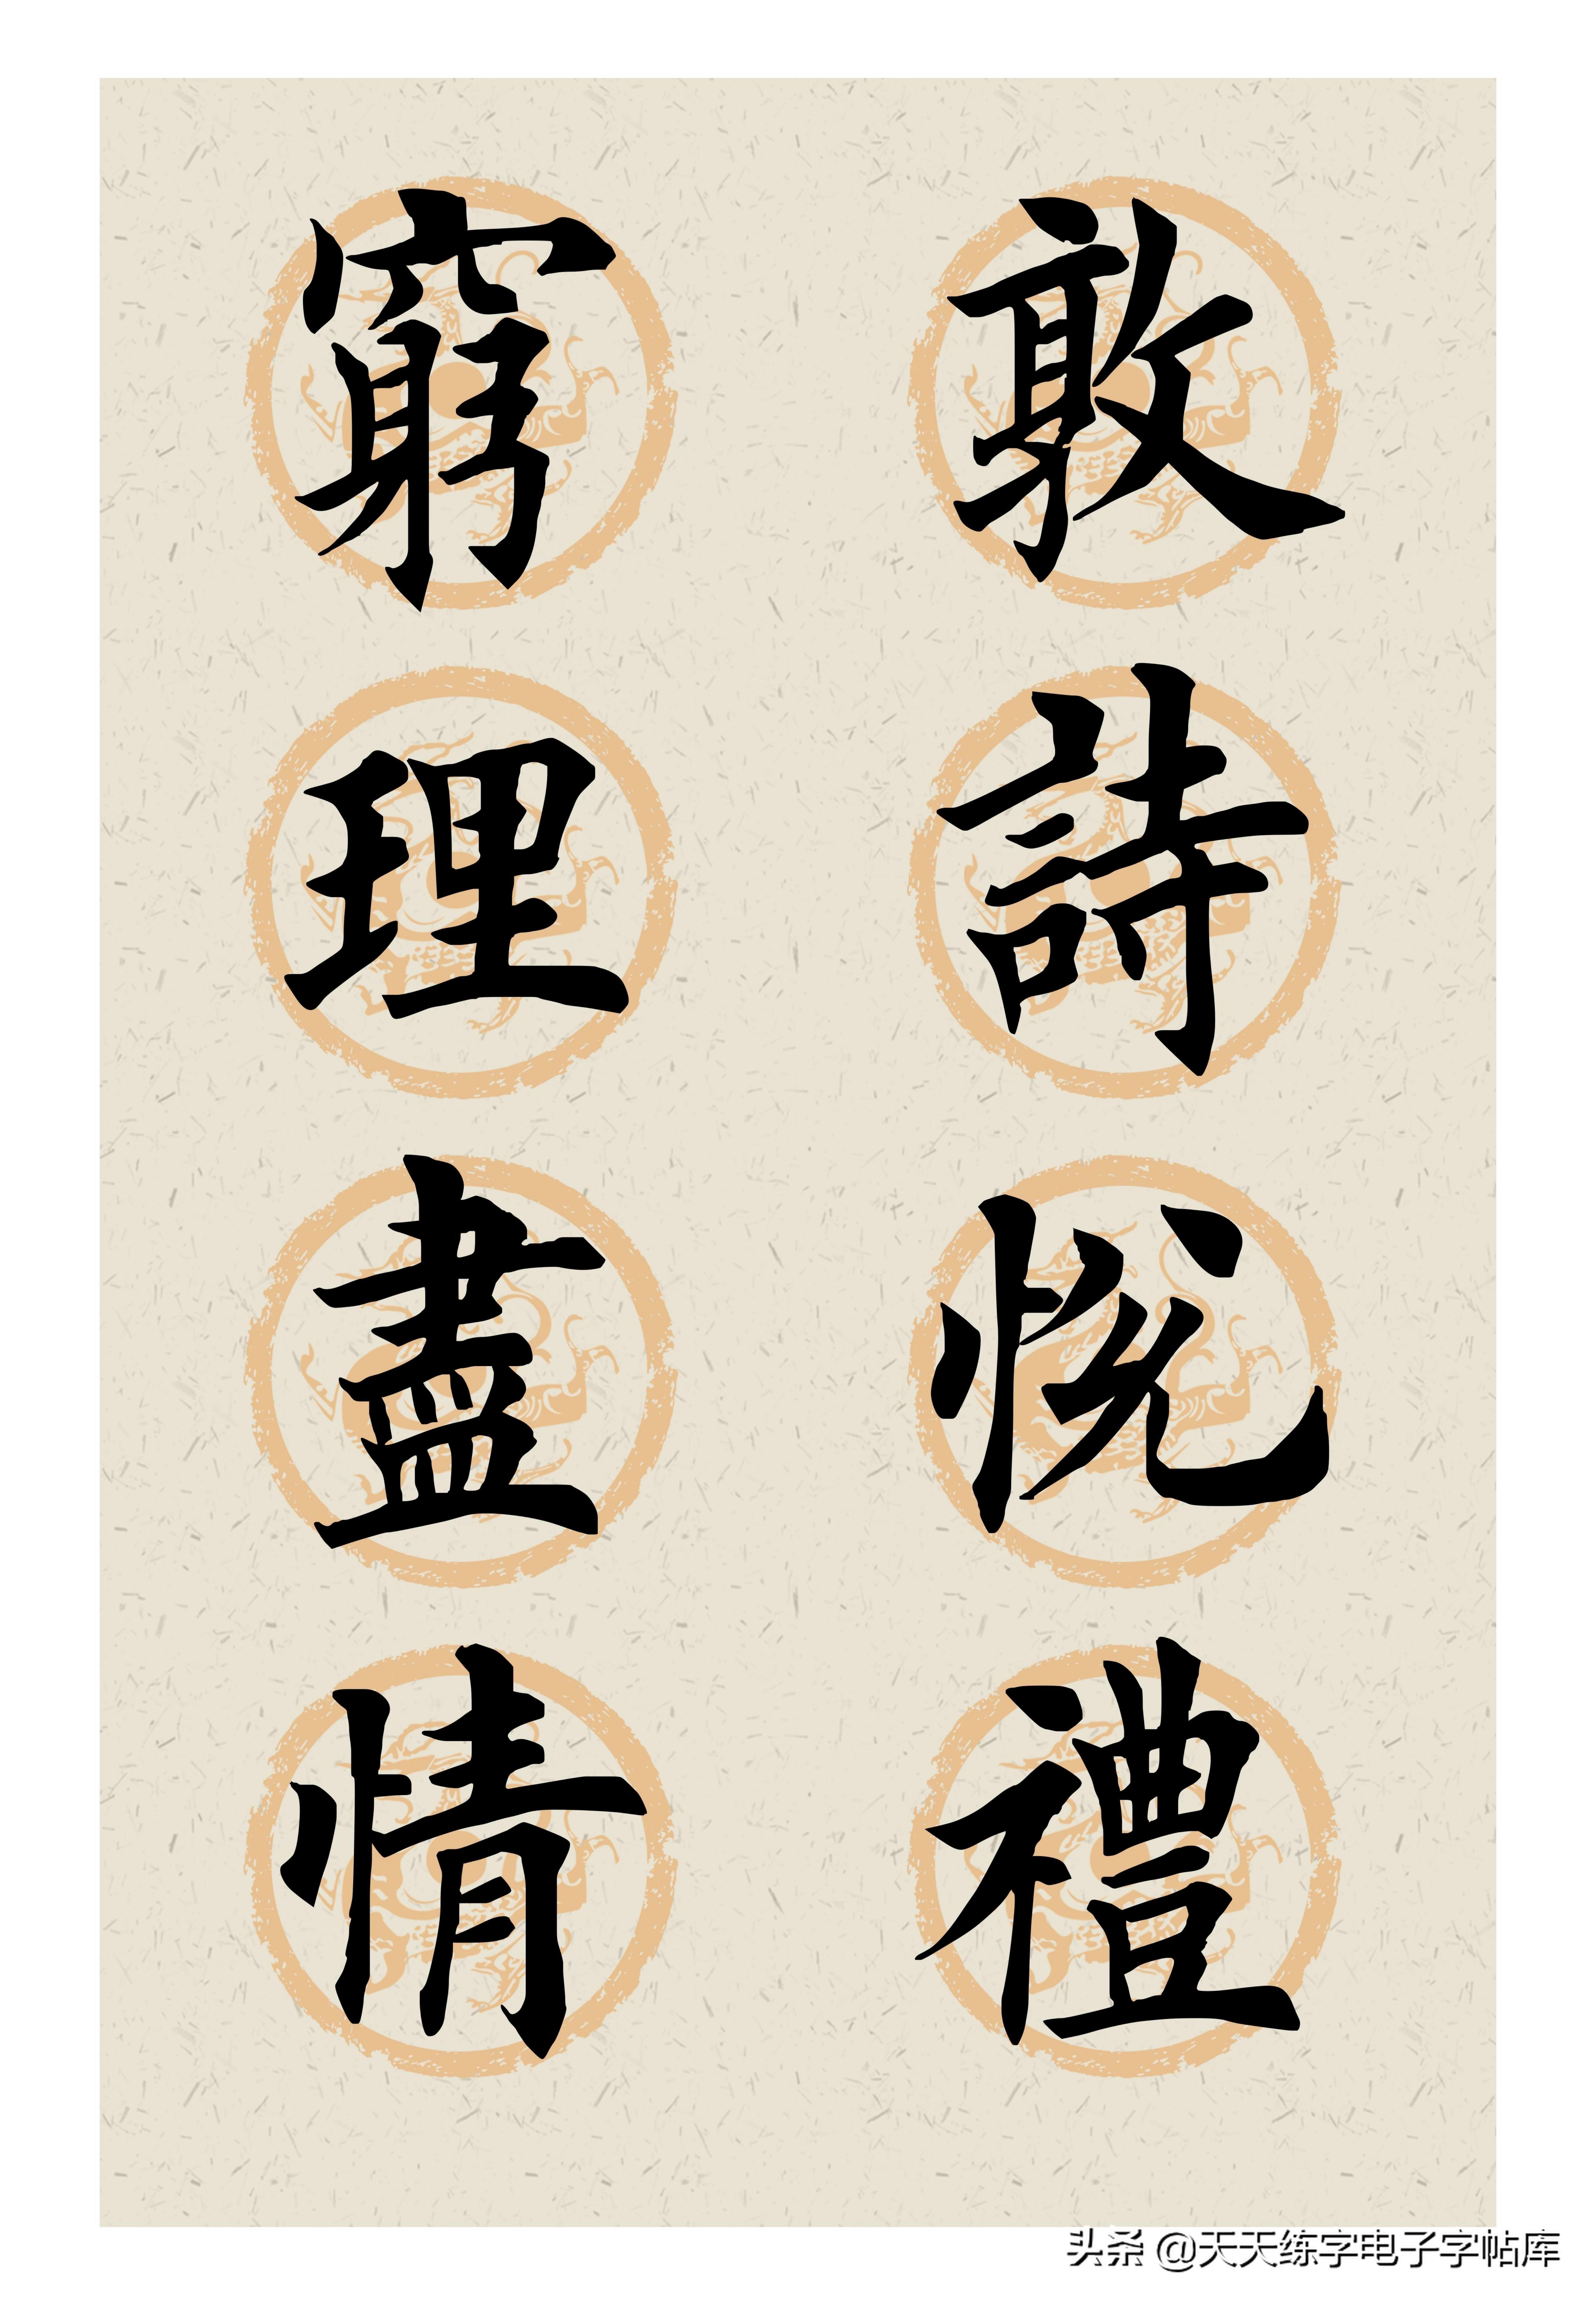 敦詩悅禮
窮理盡情
头条 @天天练字电子字帖库